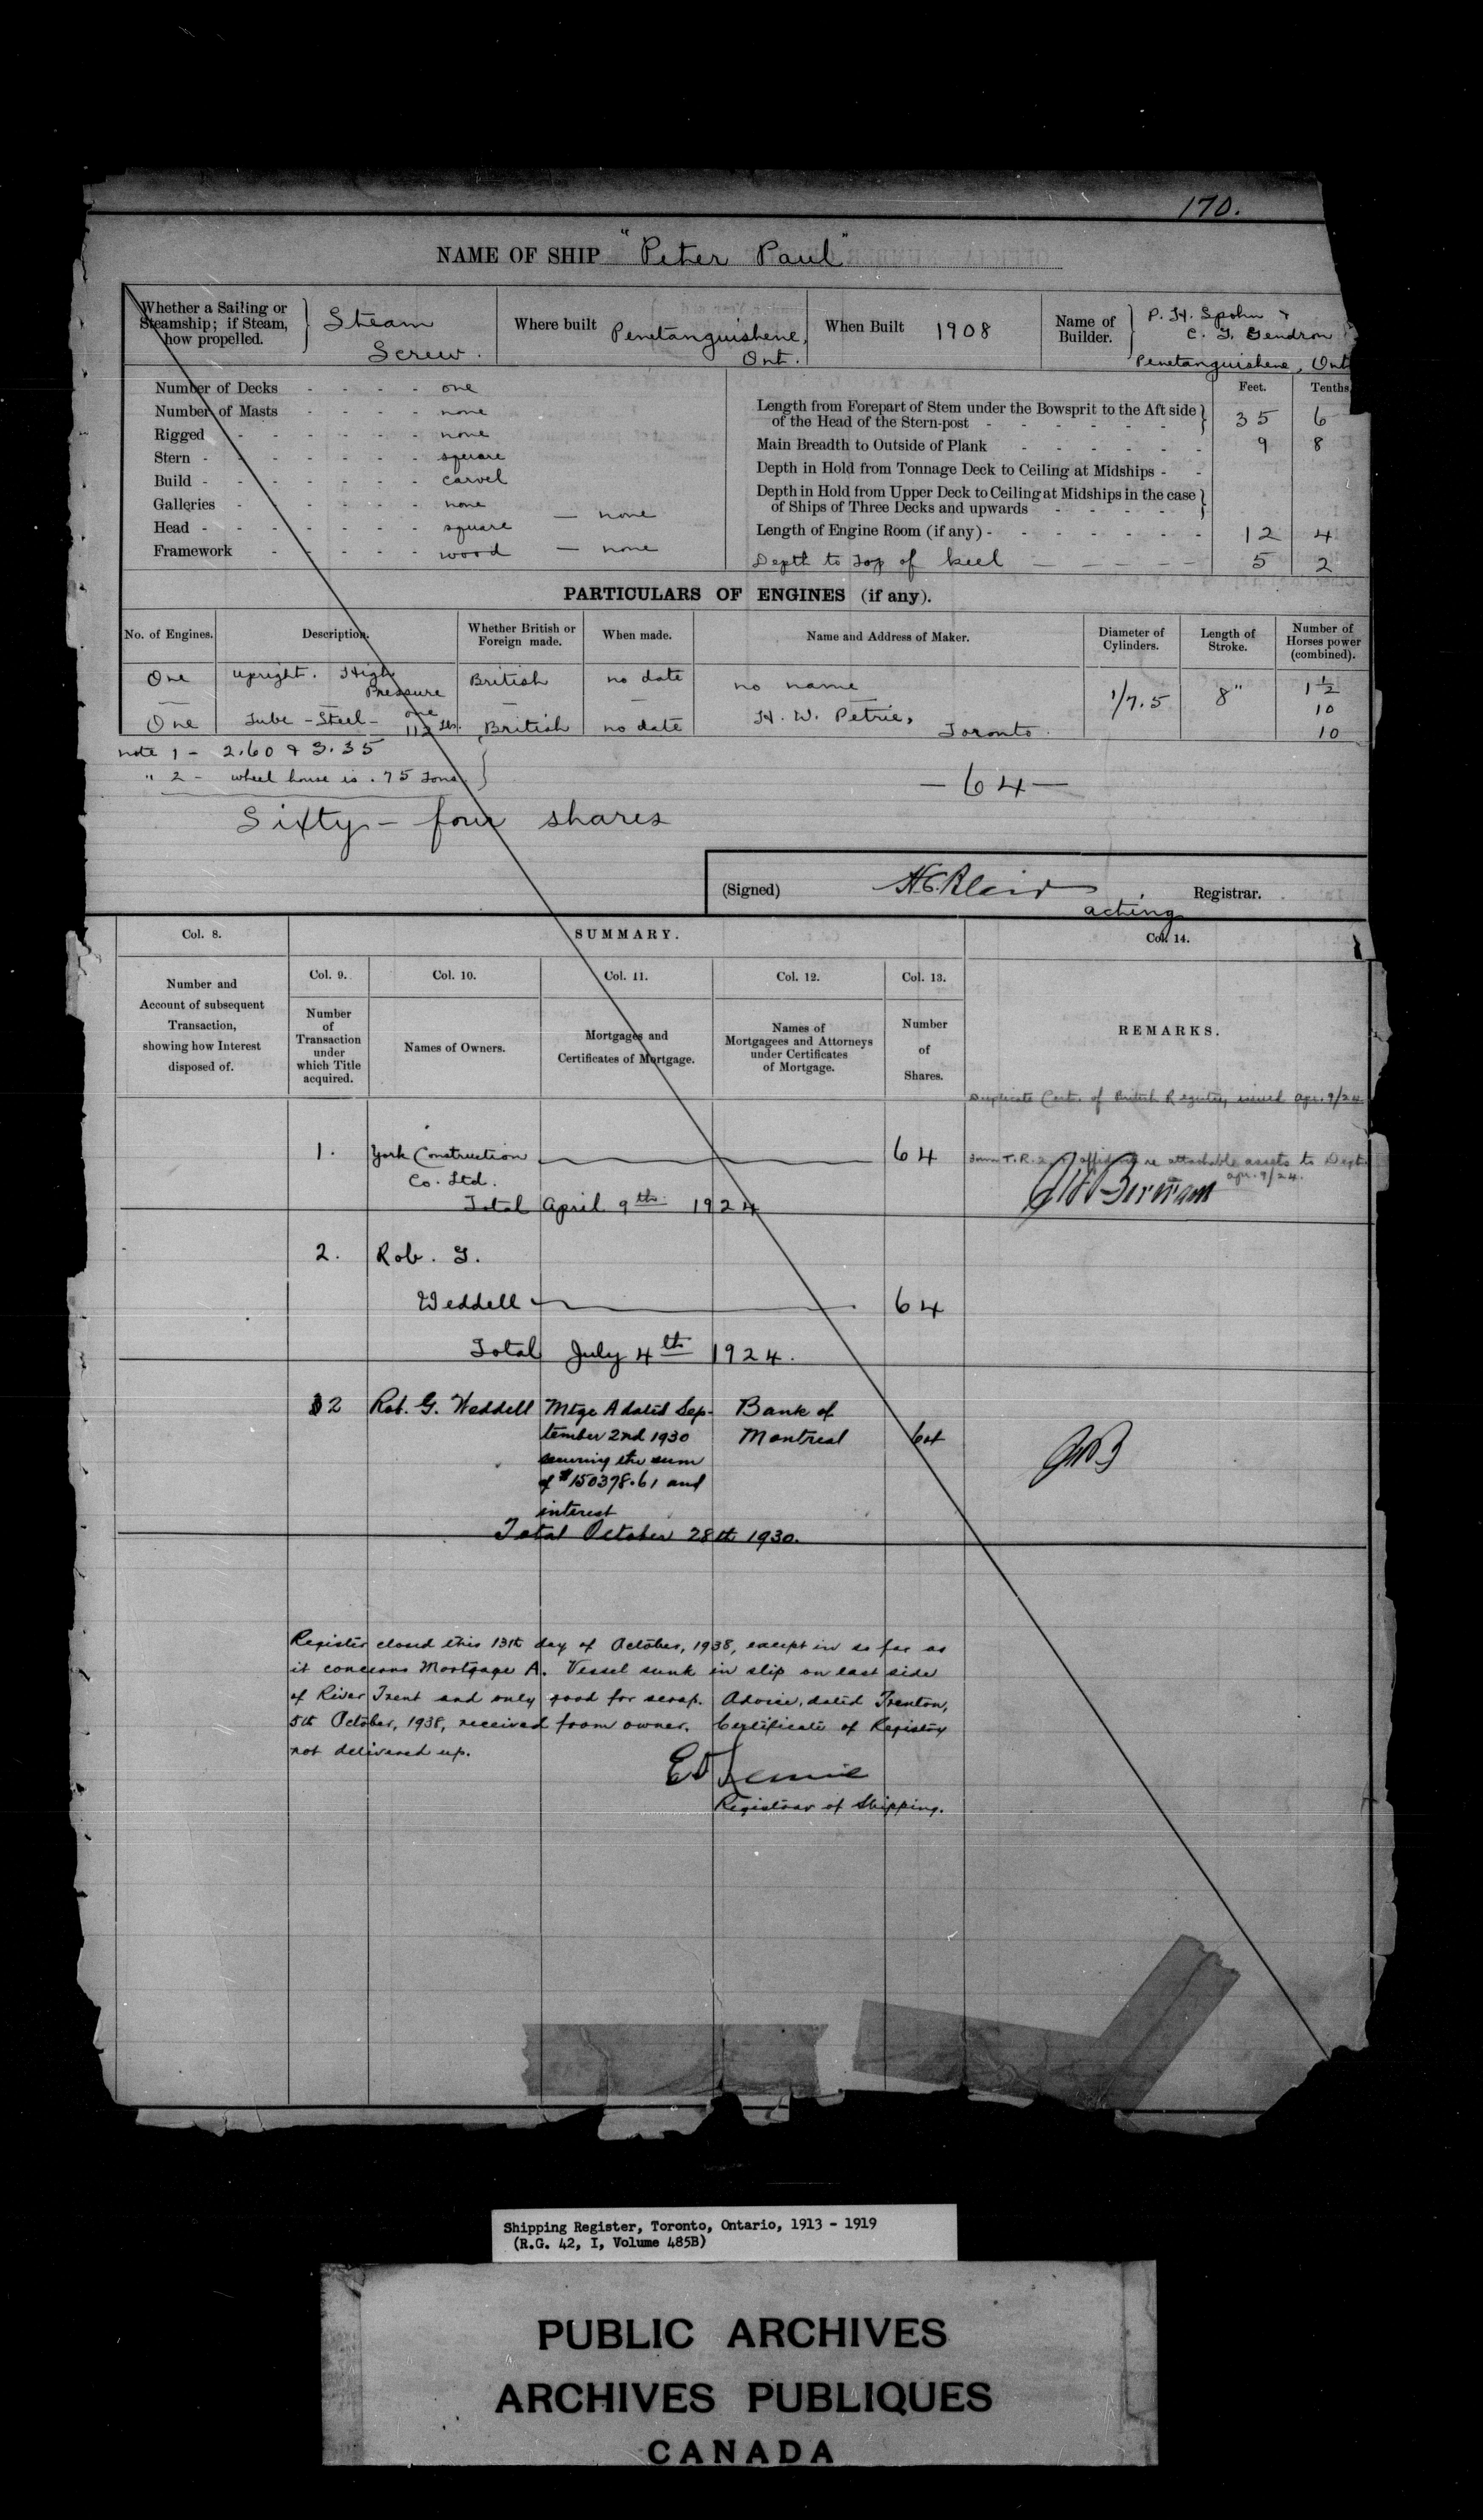 170.
NAME OF SHIP "Peter Paul"
Whether a Sailing or Steamship; if Steam, how propelled. Steam Screw.
Where built Penetanguishene, Ont.
When Built 1908
Name of Builder. P. H. Spohn & C. G. Gendron Penetanguishene, Ont
Number of Decks - - - - one
Number of Masts - - - - none
Rigged - - - - - - none
Stern - - - - - - - square
Build - - - - - - - carvel
Galleries - - - - - - none
— none
Head - - - - - - - square
Framework - - - - - wood — none
Feet. Tenths
Length from Forepart of Stem under the Bowsprit to the Aft side
of the Head of the Stern-post - - - - - - 35 6
Main Breadth to Outside of Plank - - - - - - 9 8
Depth in Hold from Tonnage Deck to Ceiling at Midships - -
Depth in Hold from Upper Deck to Ceiling at Midships in the case
of Ships of Three Decks and upwards - - - -
Length of Engine Room (if any) - - - - - - - 12 4
Depth to top of keel — — — — — 5 2
PARTICULARS OF ENGINES (if any).
No. of Engines. Description. Whether British or Foreign made. When made. Name and Address of Maker. Diameter of Cylinders. Length of Stroke. Number of Horses power (combined).
One upright. High Pressure British no date no name 1/7.5 8" 1 1/2
10
One Tube - Steel - one 112 lbs. British no date H. W. Petrie, Toronto. 10
note 1 - 2.60 & 3.35
" 2 - wheel house is .75 tons
— 64 —
Sixty - four shares
(Signed) H.C. Blair acting Registrar.
Col. 8.
SUMMARY.
Col. 14.
Number and Account of subsequent Transaction, showing how Interest disposed of.
Col. 9. Col. 10. Col. 11. Col. 12. Col. 13.
Number of Transaction under which Title acquired.
Names of Owners.
Mortgages and Certificates of Mortgage.
Names of Mortgagees and Attorneys under Certificates of Mortgage.
Number of Shares.
REMARKS.
Duplicate Cert. of British Registry, issued Apr. 9/24
1. York Construction 64
Co. Ltd.
Form T.R. affidavit re attachable assets to Dept.
apr. 9/24.
Total April 9th 1924
2. Rob. G.
Weddell 64
Total July 4th 1924.
2 Rob. G. Weddell Mtge A dated Sep- Bank of
tember 2nd 1930 Montreal 64
securing the sum
of $150378.61 and
interest
Total October 28th 1930.
Register closed this 13th day of October, 1938, except in so far as
it concerns Mortgage A. Vessel sunk in slip on east side
of River Trent and only good for scrap. Advice, dated Trenton,
5th October, 1938, received from owner. Certificate of Registry
not delivered up.
Registrar of Shipping.
Shipping Register, Toronto, Ontario, 1913 - 1919
(R.G. 42, I, Volume 485B)
PUBLIC ARCHIVES
ARCHIVES PUBLIQUES
CANADA